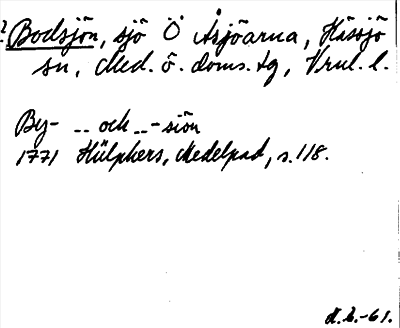 ? Bodsjön, sjö Ö Åsjöarna, Hässjö
sn, Med. ö. doms. tg, Vrnl. l.
By- -- och --- siön
1771 Hülphers, Medelpad, s. 118.
-61.